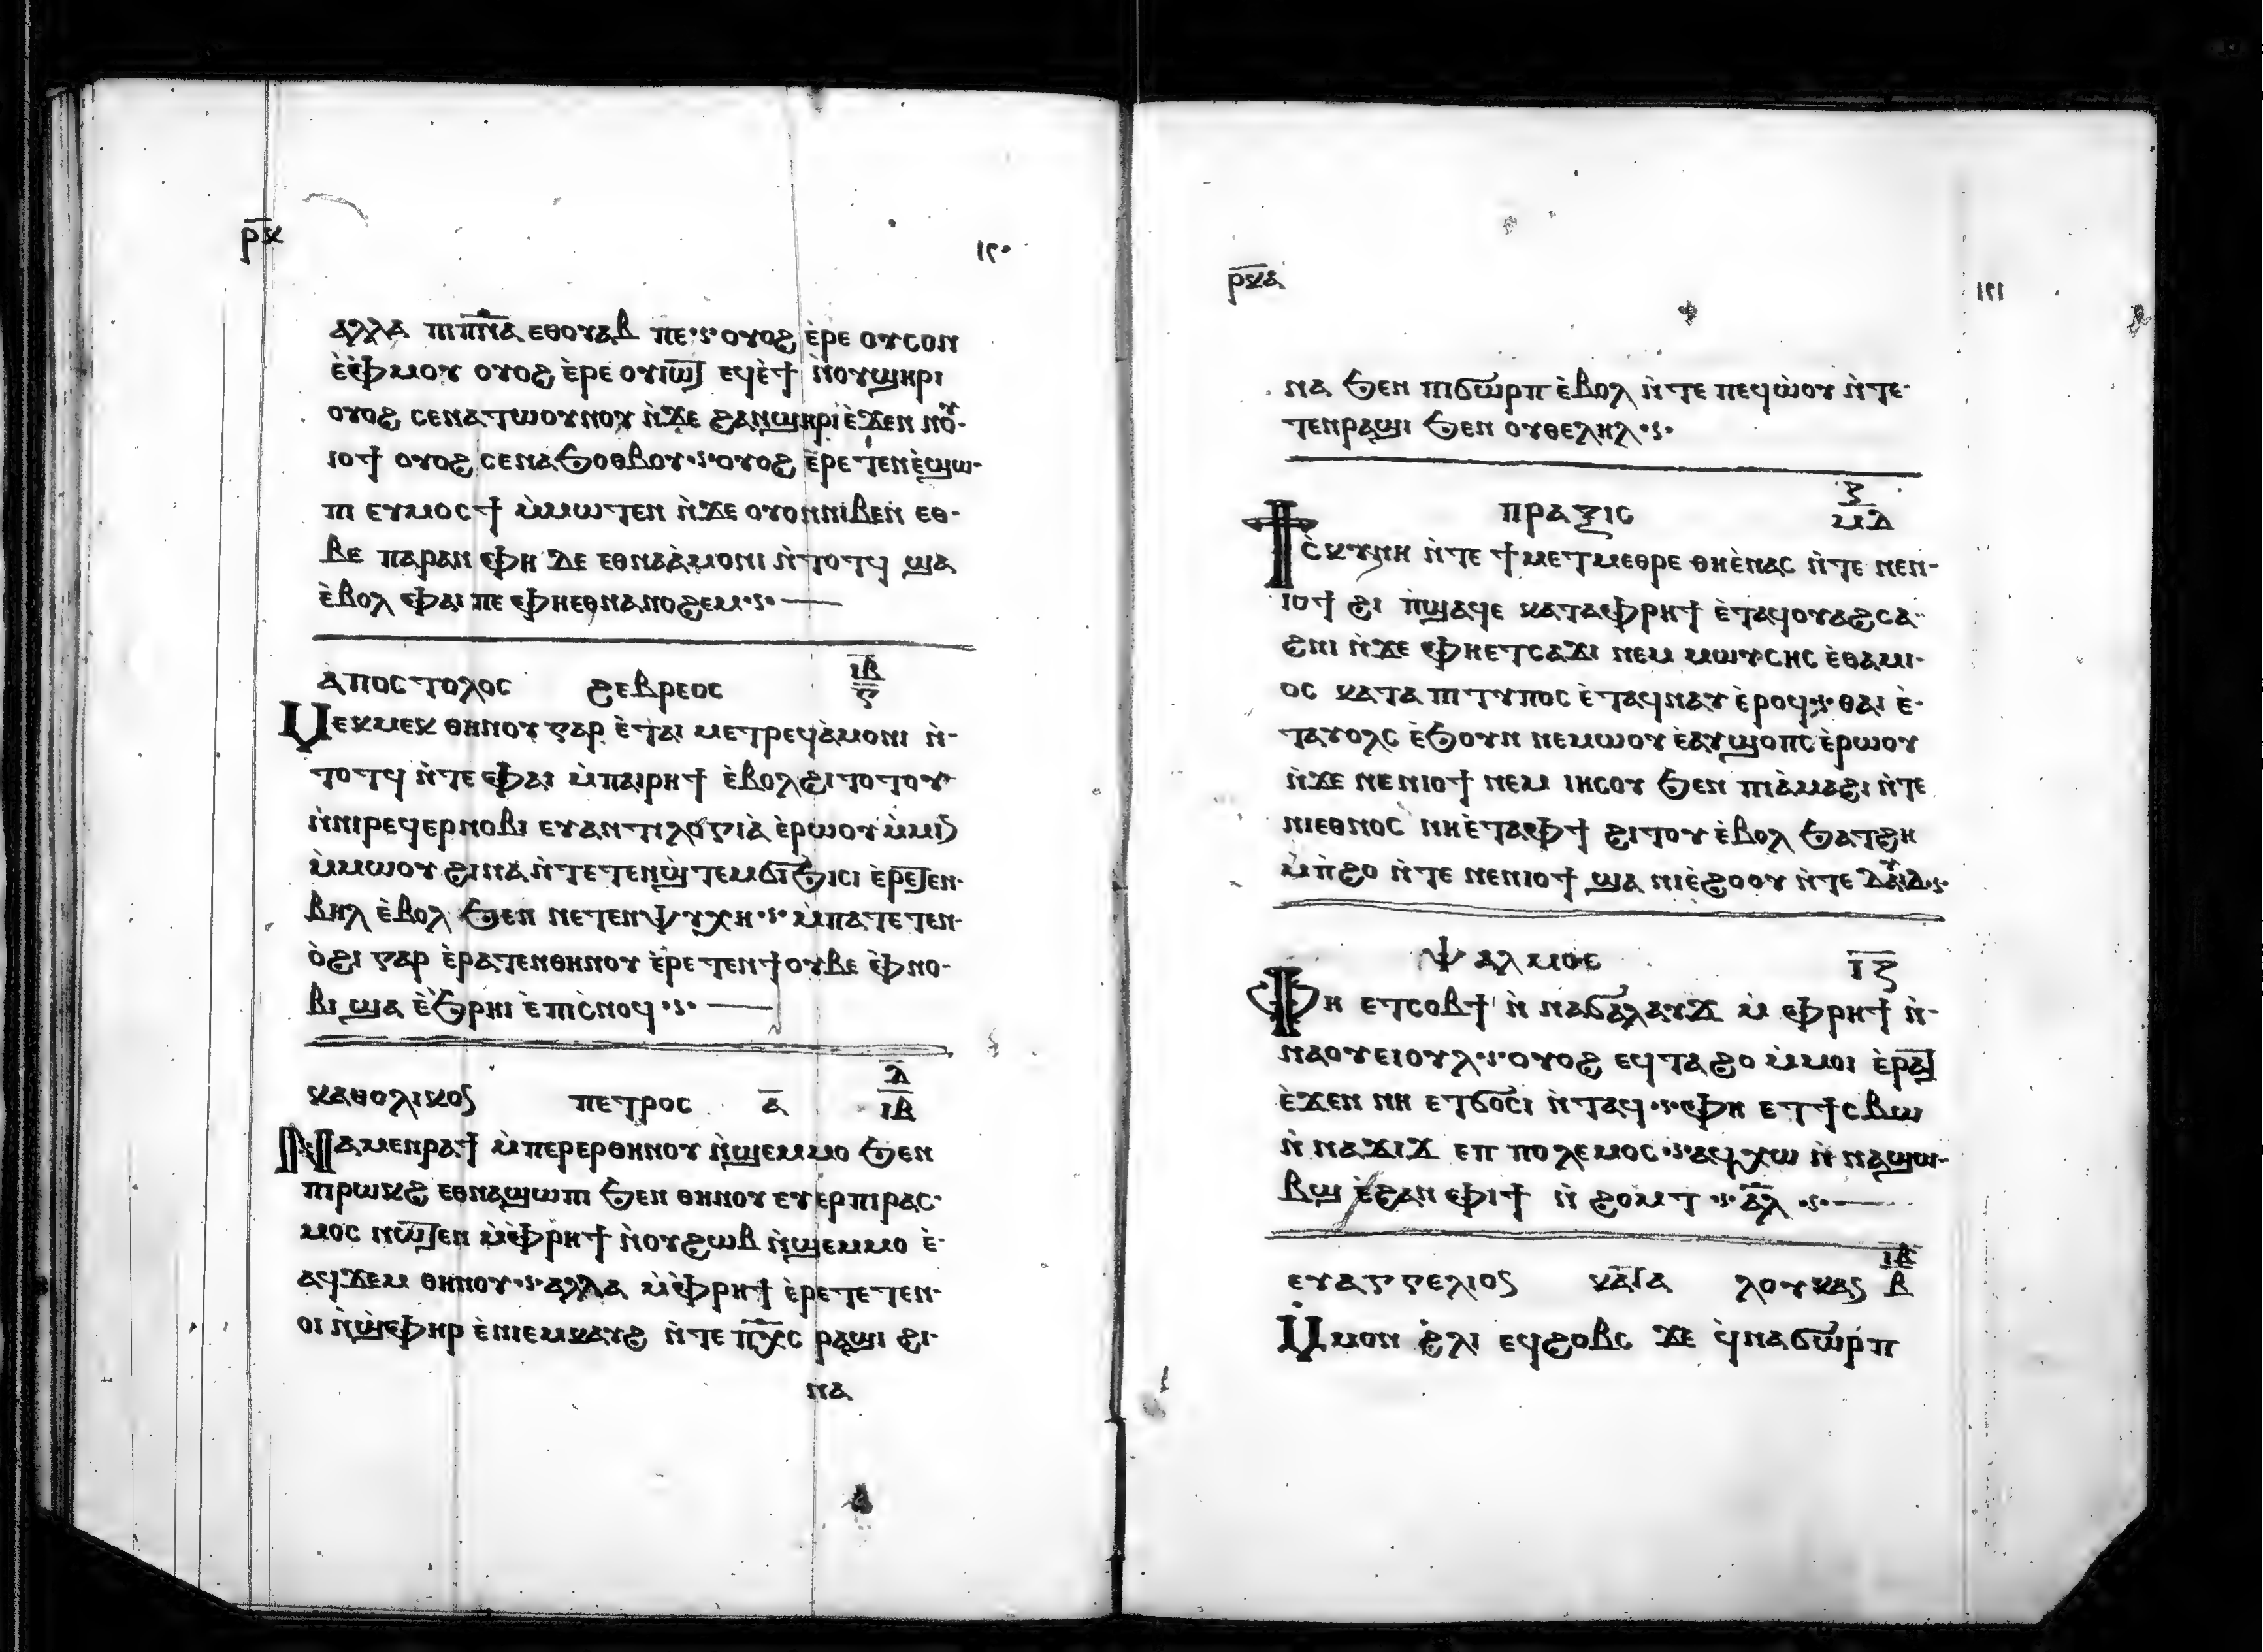 ⲣ̅ⲕ̅
١٢٠
ⲁⲗⲗⲁ ⲡⲓⲡ̅ⲛ̅ⲁ̅ ⲉⲑⲟⲩⲁⲃ ⲡⲉ ⲟⲩⲟϩ ⲉ̀ⲣⲉ ⲟⲩⲥⲟⲛ
ⲉ̀ⲉ̀ⲫⲙⲟⲩ ⲟⲩⲟϩ ⲉ̀ⲣⲉ ⲟⲩⲓⲱⲧ ⲉϥⲉ̀ϯ ⲛ̀ⲟⲩϣⲏⲣⲓ
ⲟⲩⲟϩ ⲥⲉⲛⲁⲧⲱⲟⲩⲛⲟⲩ ⲛ̀ϫⲉ ϩⲁⲛϣⲏⲣⲓ ⲉ̀ϫⲉⲛ ⲛⲟⲩ-
ⲓⲟϯ ⲟⲩⲟϩ ⲥⲉⲛⲁϧⲟⲑⲃⲟⲩ ⲟⲩⲟϩ ⲉ̀ⲣⲉⲧⲉⲛⲉ̀ϣⲱ-
ⲡⲓ ⲉⲩⲙⲟⲥϯ ⲙ̀ⲙⲱⲧⲉⲛ ⲛ̀ϫⲉ ⲟⲩⲟⲛⲛⲓⲃⲉⲛ ⲉⲑ-
ⲃⲉ ⲡⲁⲣⲁⲛ ⲫⲏ ⲇⲉ ⲉⲑⲛⲁⲁ̀ⲙⲟⲛⲓ ⲛ̀ⲧⲟⲧϥ ϣⲁ
ⲉ̀ⲃⲟⲗ ⲫⲁⲓ ⲡⲉ ⲫⲏⲉⲑⲛⲁⲛⲟϩⲉⲙ
ⲁⲡⲟⲥⲧⲟⲗⲟⲥ ϩⲉⲃⲣⲉⲟⲥ ⲓ̅ⲃ̅ ⲅ̅
Ⲙⲉⲕⲙⲉⲕ ⲑⲏⲛⲟⲩ ⲅⲁⲣ ⲉ̀ⲧⲁⲓ ⲙⲉⲧⲣⲉϥⲁ̀ⲙⲟⲛⲓ ⲛ̀-
ⲧⲟⲧϥ ⲛ̀ⲧⲉ ⲫⲁⲓ ⲙ̀ⲡⲁⲓⲣⲏϯ ⲉ̀ⲃⲟⲗϩⲓⲧⲟⲧⲟⲩ
ⲛ̀ⲛⲓⲣⲉϥⲉⲣⲛⲟⲃⲓ ⲉⲩⲁⲛⲧⲓⲗⲟⲅⲓⲁ̀ ⲉ̀ⲣⲱⲟⲩ ⲙ̀ⲙⲓⲛ
ⲙ̀ⲙⲱⲟⲩ ϩⲓⲛⲁ ⲛ̀ⲧⲉⲧⲉⲛϣ̀ⲧⲉⲙϭⲓϧⲓⲥⲓ ⲉ̀ⲣⲉⲧⲉⲛ-
ⲃⲏⲗ ⲉ̀ⲃⲟⲗ ϧⲉⲛ ⲛⲉⲧⲉⲛⲯⲩⲭⲏ ⲙ̀ⲡⲁⲧⲉⲧⲉⲛ-
ⲟ̀ϩⲓ ⲅⲁⲣ ⲉ̀ⲣⲁⲧⲉⲛⲑⲏⲛⲟⲩ ⲉ̀ⲣⲉⲧⲉⲛϯⲟⲩⲃⲉ ⲫ̀ⲛⲟ-
ⲃⲓ ϣⲁ ⲉ̀ϧⲣⲏⲓ ⲉ̀ⲡⲓⲥ̀ⲛⲟϥ
ⲕⲁⲑⲟⲗⲓⲕⲟⲥ ⲡⲉⲧⲣⲟⲥ ⲁ̅ ⲇ̅ ⲓ̅ⲃ̅
Ⲛⲁⲙⲉⲛⲣⲁϯ ⲙ̀ⲡⲉⲣⲉⲣⲑⲏⲛⲟⲩ ⲛ̀ϣⲉⲙⲙⲟ ϧⲉⲛ
ⲡⲓⲣⲱⲕϩ ⲉⲑⲛⲁϣⲱⲡⲓ ϧⲉⲛ ⲑⲏⲛⲟⲩ ⲉⲩⲉⲣⲡⲓⲣⲁⲥ-
ⲙⲟⲥ ⲛⲱⲧⲉⲛ ⲙ̀ⲫ̀ⲣⲏϯ ⲛ̀ⲟⲩϩⲱⲃ ⲛ̀ϣⲉⲙⲙⲟ ⲉ̀-
ⲁϥϫⲉⲙ ⲑⲏⲛⲟⲩ ⲁⲗⲗⲁ ⲙ̀ⲫ̀ⲣⲏϯ ⲉ̀ⲣⲉⲧⲉⲧⲉⲛ-
ⲟⲓ ⲛ̀ϣ̀ⲫⲏⲣ ⲉ̀ⲛⲓⲉⲙⲕⲁⲩϩ ⲛ̀ⲧⲉ ⲡⲭ̅ⲥ ⲣⲁϣⲓ ϩⲓ-
ⲛⲁ
ⲣ̅ⲕ̅ⲁ̅
١٢١
ⲛⲁ ϧⲉⲛ ⲡⲓϭⲱⲣⲡ ⲉ̀ⲃⲟⲗ ⲛ̀ⲧⲉ ⲡⲉϥⲱ̀ⲟⲩ ⲛ̀ⲧⲉ-
ⲧⲉⲛⲣⲁϣⲓ ϧⲉⲛ ⲟⲩⲑⲉⲗⲏⲗ
ⲡⲣⲁⲝⲓⲥ ⲍ̅ ⲙ̅ⲇ̅
Ϯⲥ̀ⲕⲩⲛⲏ ⲛ̀ⲧⲉ ϯⲙⲉⲧⲙⲉⲑⲣⲉ ⲑⲏⲉ̀ⲛⲁⲥ ⲛ̀ⲧⲉ ⲛⲉⲛ-
ⲓⲟϯ ϩⲓ ⲡϣⲁϥⲉ ⲕⲁⲧⲁⲫⲣⲏϯ ⲉ̀ⲧⲁϥⲟⲩⲁϩⲥⲁ-
ϩⲛⲓ ⲛ̀ϫⲉ ⲫⲏⲉⲧⲥⲁϫⲓ ⲛⲉⲙ ⲙⲱⲩⲥⲏⲥ ⲉ̀ⲑⲁⲙⲓ-
ⲟⲥ ⲕⲁⲧⲁ ⲡⲓⲧⲩⲡⲟⲥ ⲉ̀ⲧⲁϥⲛⲁⲩ ⲉ̀ⲣⲟϥ ⲑⲁⲓ ⲉ̀-
ⲧⲁⲩⲟⲗⲥ ⲉ̀ϧⲟⲩⲛ ⲛⲉⲙⲱⲟⲩ ⲉ̀ⲁⲩϣⲟⲡⲥ ⲉ̀ⲣⲱⲟⲩ
ⲛ̀ϫⲉ ⲛⲉⲛⲓⲟϯ ⲛⲉⲙ ⲓⲏⲥⲟⲩ ϧⲉⲛ ⲡⲓⲁ̀ⲙⲁϩⲓ ⲛ̀ⲧⲉ
ⲛⲓⲉⲑⲛⲟⲥ ⲛⲏⲉ̀ⲧⲁⲫϯ ϩⲓⲧⲟⲩ ⲉ̀ⲃⲟⲗ ϧⲁⲧϩⲏ
ⲙ̀ⲡ̀ϩⲟ ⲛ̀ⲧⲉ ⲛⲉⲛⲓⲟϯ ϣⲁ ⲛⲓⲉ̀ϩⲟⲟⲩ ⲛ̀ⲧⲉ ⲇⲁⲩⲓⲇ
ⲯⲁⲗⲙⲟⲥ ⲓ̅ⲍ̅
Ⲫⲏ ⲉⲧⲥⲟⲃϯ ⲛ̀ ⲛⲁϭⲁⲗⲁⲩϫ ⲙ̀ ⲫⲣⲏϯ ⲛ̀-
ⲛⲁⲟⲩⲉⲓⲟⲩⲗ ⲟⲩⲟϩ ⲉϥⲧⲁϩⲟ ⲙ̀ⲙⲟⲓ ⲉ̀ⲣⲁⲧ
ⲉ̀ϫⲉⲛ ⲛⲏ ⲉⲧϭⲟⲥⲓ ⲛ̀ⲧⲁϥ ⲫⲏ ⲉⲧϯⲥⲃⲱ
ⲛ̀ ⲛⲁϫⲓϫ ⲉⲡ ⲡⲟⲗⲉⲙⲟⲥ ⲁϥⲭⲱ ⲛ̀ ⲛⲁϣⲱ-
ⲃϣ ⲉ̀ϩⲁⲛ ⲫⲓϯ ⲛ̀ ϩⲟⲙⲧ ⲁ̅ⲗ̅
ⲉⲩⲁⲅⲅⲉⲗⲓⲟⲥ ⲕⲁⲧⲁ ⲗⲟⲩⲕⲁⲥ ⲓ̅ⲃ̅ ⲃ̅
Ⲙ̀ⲙⲟⲛ ϩ̀ⲗⲓ ⲉϥϩⲟⲃⲥ ϫⲉ ϥ̀ⲛⲁϭⲱⲣⲡ